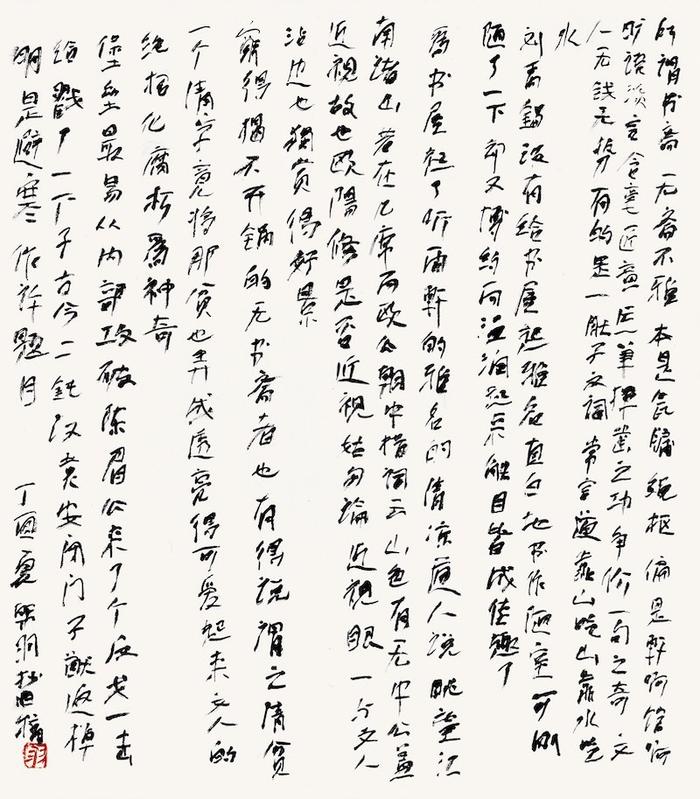 所谓书斋无斋不雅 本是瓮牖绳枢 偏是轩啊馆啊
语淡言含毫 之功争价一句之奇 文
人无钱无势 有的是一肚子文词 常言道靠山吃山靠水吃
水
刘禹锡没有给书屋起雅名直白地书作陋室 可刚
陋了一下 却又博约而温润起来触目皆成佳趣了
为书屋起了听雨轩的雅名的清凉道人说 眺望江
南诸山 若在几席 而欧公朝中措词云 山色有无中 公盖
近视故也 欧阳修是否近视姑勿论 近视眼一与文人
沾边也独赏得好景
穷得揭不开锅的无书斋者也有得说 谓之清贫
一个清字竟将那贫也弄成 亮得可爱起来 文人的
绝招化腐朽为神奇
堡垒最易从内部攻破 陈眉公来了个反戈一击
给戳了一下子 古今二钝汉 袁安闭门 子猷返棹
明是避寒作许题目 丁酉夏